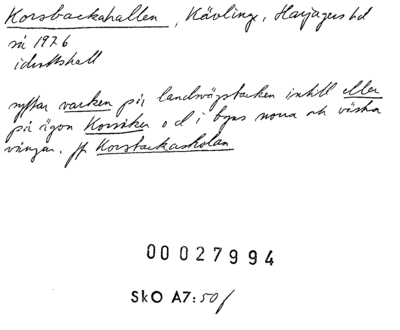 Korsbackahallen, Kävlinge, Harjagers hd
si 1976
idrottshall
syftar varken på landsvägsbacken intill eller
på ägon Korsåker o d i byns norra och västra
vångar. Jf Korsbackaskolan
00027994
SkO A7:50f